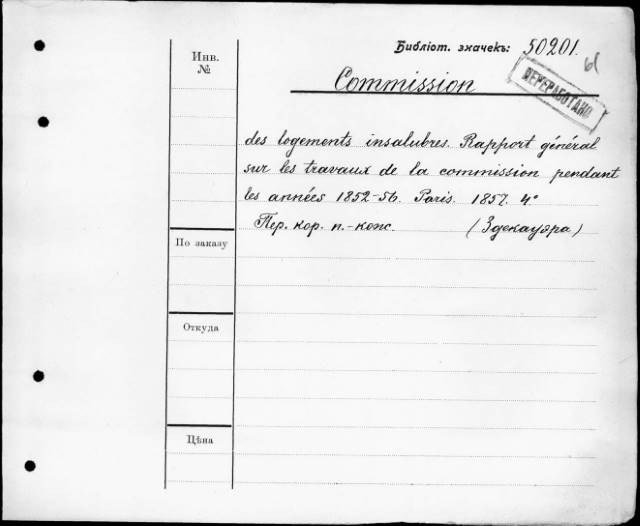 Библіот. значекъ: 50201.
Инв.
№
ПЕРЕРАБОТАНО
Commission
des logements insalubres. Rapport général
sur les travaux de la commission pendant
les années 1852-56. Paris. 1857. 4°
Пер. кор. п.-кож. (Здекауэра)
По заказу
Откуда
Цѣна